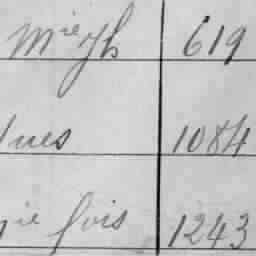 Mie Yh 619
ues 1084
ie fois 1243